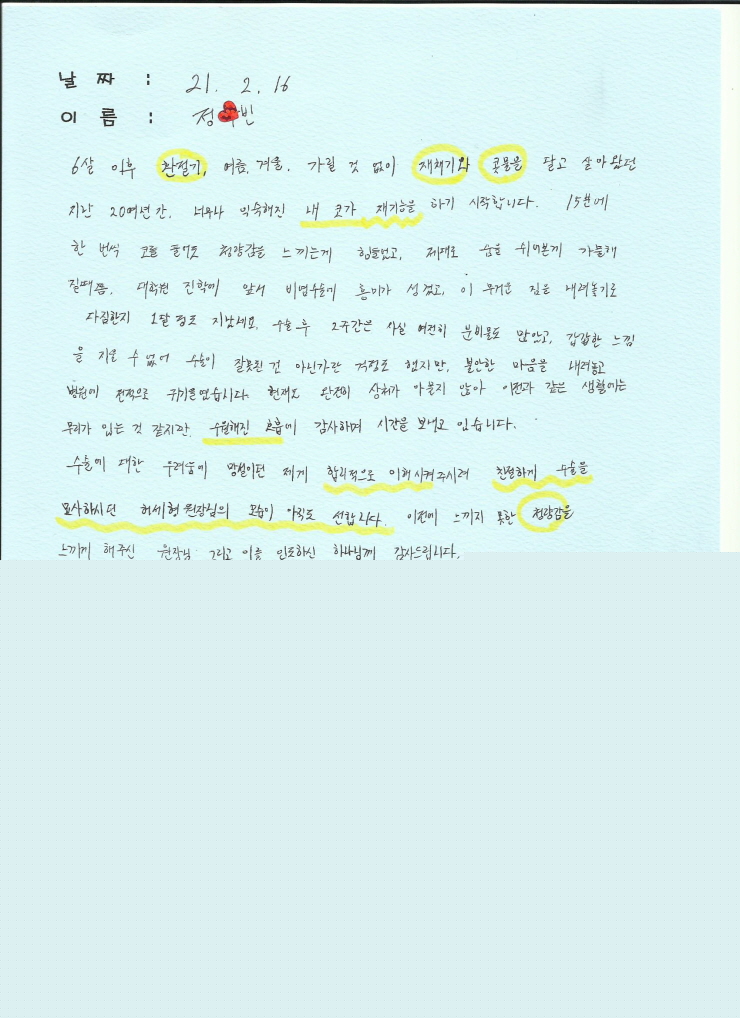 날 짜 : 21. 2. 16
이 름 : 정 빈
6살 이후 환절기, 여름, 겨울, 가릴 것 없이 재채기와 콧물을 달고 살아왔던
지난 20여년간, 너무나 익숙해진 내 코가 제기능을 하기 시작합니다. 15분에
한 번씩 코를 풀어도 청량감을 느끼는게 힘들었고, 제대로 숨을 쉬어본게 가물해
질때쯤, 대학원 진학에 앞서 비염수술에 흥미가 생겼고, 이 무거운 짐을 내려놓기로
다짐한지 1달 정도 지났네요. 수술 후 2주간은 사실 여전히 분비물도 많았고, 갑갑한 느낌
을 지울 수 없어 수술이 잘못된 건 아닌가란 걱정도 했지만, 불안한 마음을 내려놓고
병원에 전적으로 귀기울였습니다. 현재도 완전히 상처가 아물지 않아 이전과 같은 생활에는
무리가 있는 것 같지만, 수월해진 호흡에 감사하며 시간을 보내고 있습니다.
수술에 대한 두려움에 망설이던 제게 합리적으로 이해시켜주시려 친절하게 수술을
묘사하시던 허세형 원장님의 모습이 아직도 선합니다. 이전에 느끼지 못한 청량감을
느끼게 해주신 원장님 그리고 이를 인도하신 하나님께 감사드립니다.